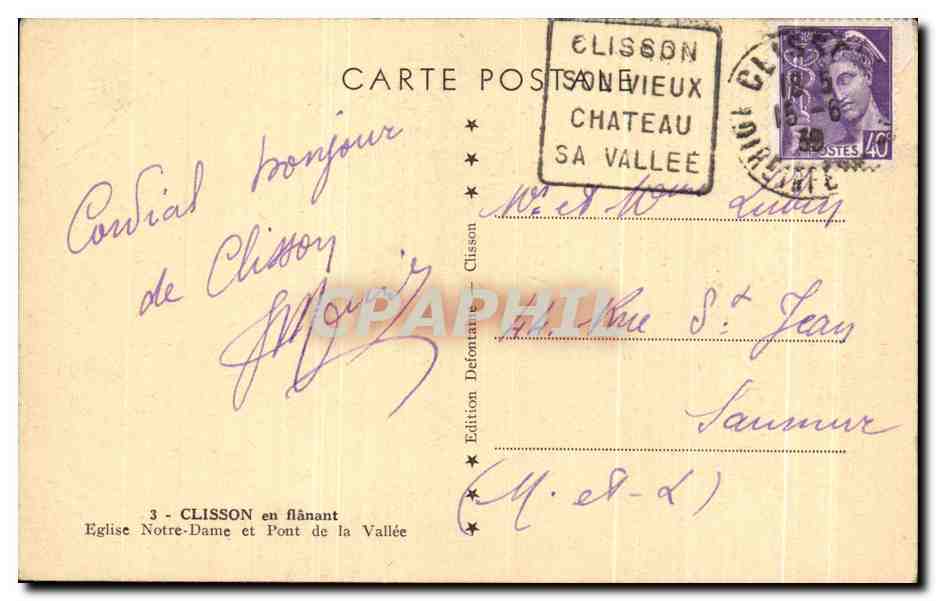 CARTE POSTALE
CLISSON
SON VIEUX
CHATEAU
SA VALLEE
CLISSON
18 5
15 -6
39
LOIRE INFRE
POSTES 40c
Cordial bonjour
de Clisson
Mr et Mme Lubin
44. Rue St Jean
Saumur
(M. et-L)
Edition Defontaine - Clisson
CPAPHIL
3 - CLISSON en flânant
Eglise Notre-Dame et Pont de la Vallée